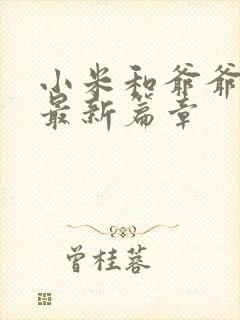 小米和爷爷
最新篇章
曾桂蓉